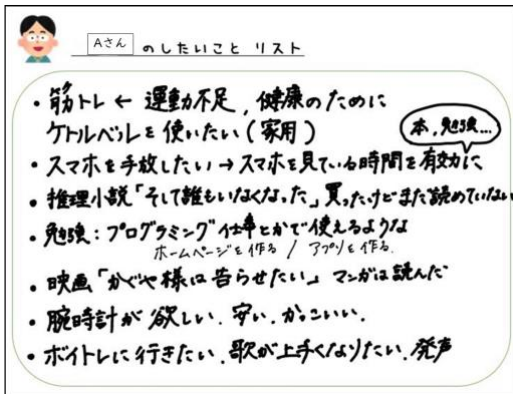 Aさん のしたいこと リスト
・筋トレ ← 運動不足, 健康のために
ケトルベルを使いたい(家用)
本, 勉強...
・スマホを手放したい → スマホを見ている時間を有効に
・推理小説「そして誰もいなくなった」買ったけどまだ読めていない
・勉強:プログラミング 仕事とかで使えるような
ホームページを作る / アプリを作る.
・映画「かぐや様は告らせたい」マンガは読んだ
・腕時計が欲しい. 安い. かっこいい.
・ボイトレに行きたい. 歌が上手くなりたい. 発声